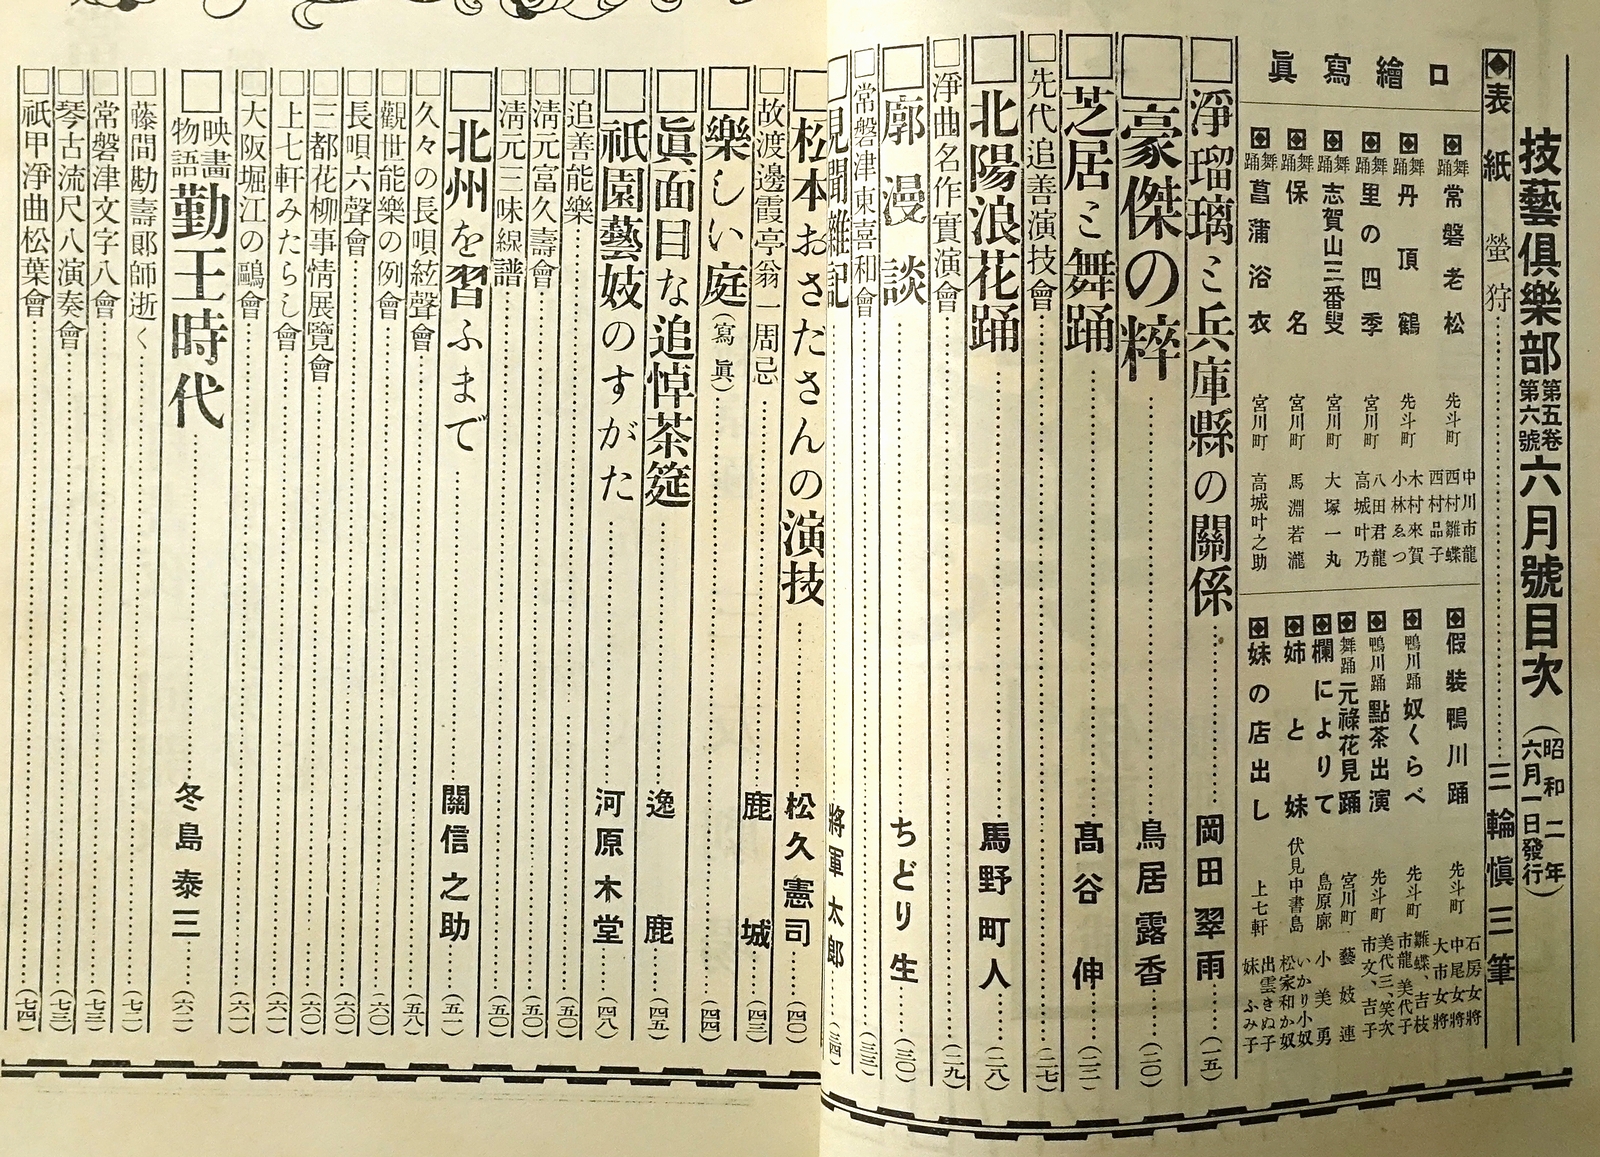 技藝俱樂部 第五卷 第六號 六月號目次 (昭和二年 六月一日發行)
表紙 螢狩 三輪愼三筆
口繪寫眞
舞踊 常磐老松 先斗町 中川市龍 西村雛蝶 西村品子
舞踊 丹頂鶴 先斗町 木村來賀 小林ゑつ
里の四季 宮川町 八田君龍 高城叶乃
舞踊 志賀山三番叟 宮川町 大塚一丸
舞踊 保名 宮川町 馬淵若瀧
舞踊 菖蒲浴衣 宮川町 高城叶之助
假裝鴨川踊 先斗町 石房女將 中尾女將 大市女將
鴨川踊 奴くらべ 先斗町 雛蝶、吉枝 市龍、美代子
鴨川踊 點茶出演 先斗町 美代三、笑次 市文、吉子
舞踊 元祿花見踊 宮川町 藝妓連
欄によりて 島原廓 小美勇
姉と妹 伏見中書島 いかり小奴 松家和か奴
妹の店出し 上七軒 出雲きぬ子 妹ふみ子
淨瑠璃と兵庫縣の關係 岡田翠雨 (一五)
豪傑の粹 鳥居露香 (二〇)
芝居と舞踊 髙谷伸 (二二)
先代追善演技會 (二七)
北陽浪花踊 馬野町人 (二八)
淨曲名作實演會 (二九)
廓漫談 ちどり生 (三〇)
常磐津東喜和會 (三三)
見聞雜記 將軍太郎 (三四)
松本おさださんの演技 松久憲司 (四〇)
故渡邊霞亭翁一周忌 鹿城 (四三)
樂しい庭(寫眞) (四四)
眞面目な追悼茶筵 逸鹿 (四五)
祇園藝妓のすがた 河原木堂 (四八)
追善能樂 (五〇)
淸元富久壽會 (五〇)
淸元三味線譜 (五〇)
北州を習ふまで 關信之助 (五一)
久々の長唄絃聲會 (五八)
觀世能樂の例會 (六〇)
長唄六聲會 (六〇)
三都花柳事情展覽會 (六〇)
上七軒みたらし會 (六一)
大阪堀江の鷗會 (六一)
映畫物語 勤王時代 冬島泰三 (六二)
藤間勘壽郞師逝く (七二)
常磐津文字八會 (七三)
琴古流尺八演奏會 (七三)
祇甲淨曲松葉會 (七四)